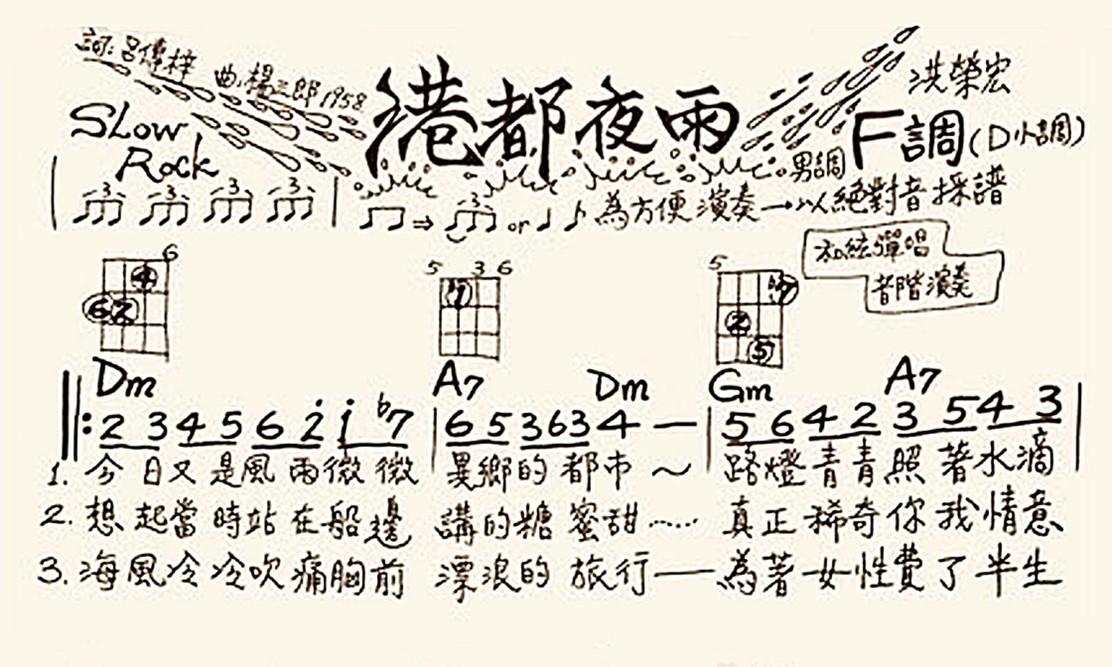 詞:呂傳梓 曲:楊三郎1958
港都夜雨
洪榮宏
SLow Rock
男調 F調(D小調)
3 3 3 3
⇒ 3 or ♩ ♪ 為方便演奏→以絕對音採譜
和絃彈唱
音階演奏
6
4
6 2
5 3 6
1
5
♭7
2
5
Dm A7 Dm Gm A7
2 3 4 5 6 2 1 ♭7 | 6 5 3 6 3 4 — | 5 6 4 2 3 5 4 3 |
1. 今日又是風雨微微 異鄉的都市~ 路燈青青照著水滴
2. 想起當時站在船邊 講的糖蜜甜…… 真正稀奇你我情意
3. 海風冷冷吹痛胸前 漂浪的旅行——為著女性費了半生